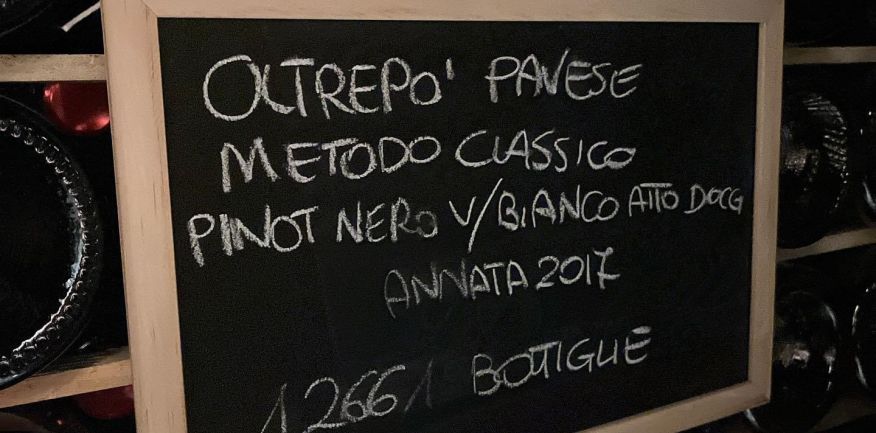 OLTREPO' PAVESE
METODO CLASSICO
PINOT NERO V/BIANCO ATTO DOCG
ANNATA 2017
12661 BOTTIGLIE